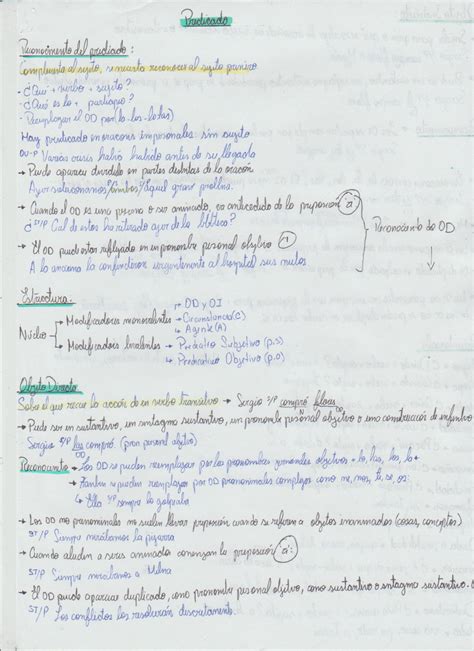 Predicado
Reconocimiento del predicado:
Complementa al sujeto, si necesito reconocer al sujeto primero
- ¿Qué + verbo + sujeto?
- ¿Qué es lo + participio?
- Reemplazar el OD por lo-los-la(s)
Hay predicado en oraciones impersonales: sin sujeto
Varias casas había habido antes de su llegada
→ Puede aparecer dividido en partes distintas de la oración
Ayer solucionamos ambos aquel grave problema.
→ Cuando el OD es una persona o ser animado, va antecedido de la preposición "a"
Reconocimiento de OD
¿ de estar ha retirado ayer de la biblioteca?
→ El OD puede estar reflejado en un pronombre personal objetivo "a"
A la anciana la condujeron urgentemente al hospital sus nietos
Estructura:
Núcleo
→ Modificadores monovalentes
→ OD y OI
→ Circunstancia (C)
→ Agente (A)
→ Modificadores bivalentes
→ Predicativo Subjetivo (p.s)
→ Predicativo Objetivo (p.o)
Objeto Directo
Sobre el que recae la acción de un verbo transitivo → Sergio S/P compró flores
OD
→ Puede ser un sustantivo, un sintagma sustantivo, un pronombre personal objetivo o una construcción de infinitivo
Sergio S/P las compró (pron personal objetivo)
Reconocimiento → Los OD se pueden reemplazar por los pronombres personales objetivos + lo, las, los, la
→ También se pueden reemplazar por OD pronominales complejos como me, nos, ti, se, os:
→ Ella S/P siempre la golpeaba
→ Los OD no pronominales no suelen llevar preposición cuando se refieren a objetos inanimados (cosas, conceptos)
ST/P Siempre mirábamos la pizarra
→ Cuando aluden a seres animados comienzan la preposición "a":
ST/P
Siempre mirábamos a Milna
→ El OD puede aparecer duplicado, como pronombre personal objetivo, como sustantivo o sintagma sustantivo.
ST/P Los conflictos los resolverán discretamente.